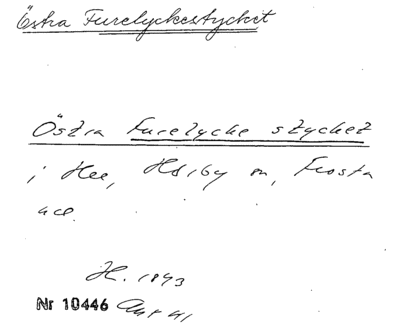 Östra Furelyckestycket
Östra Furelycke stycket
i Hee, Hörby sn, Frosta
H. 1843
Nr 10446